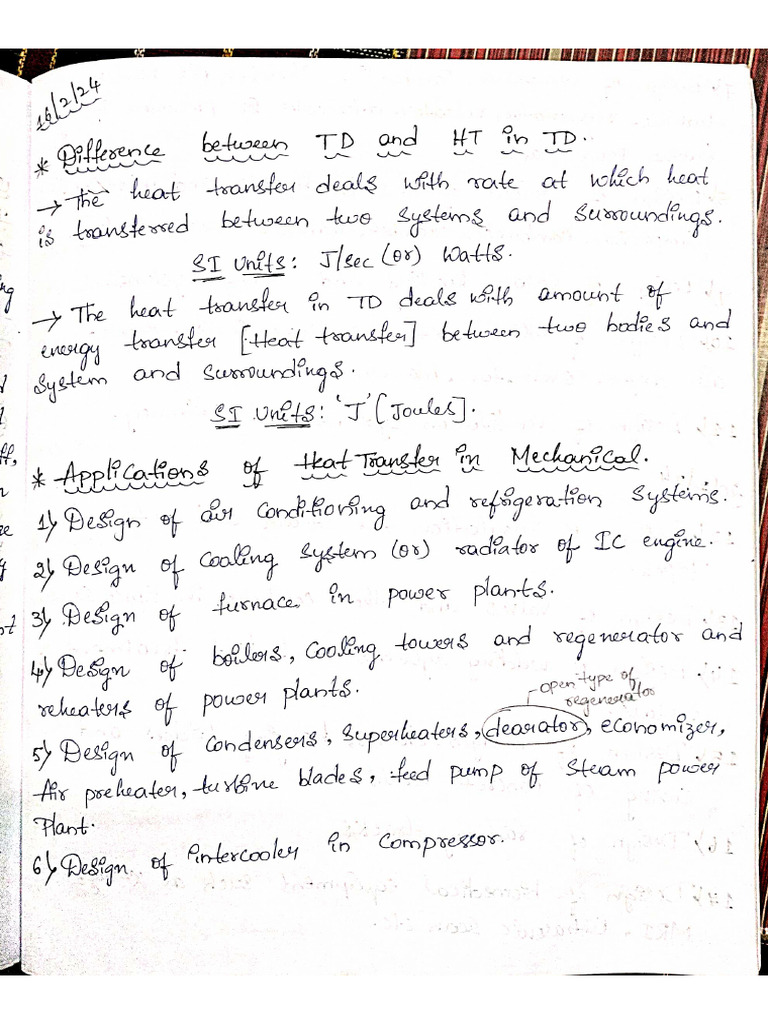 16/2/24
* Difference between TD and HT in TD.
→ The heat transfer deals with rate at which heat
is transferred between two systems and surroundings.
SI Units: J/sec (or) Watts.
→ The heat transfer in TD deals with amount of
energy transfer [Heat transfer] between two bodies and
system and surroundings.
SI Units: 'J' [Joules].
* Applications of Heat Transfer in Mechanical.
1) Design of air conditioning and refrigeration systems.
2) Design of cooling system (or) radiator of IC engine.
3) Design of furnace in power plants.
4) Design of boilers, cooling towers and regenerator and
reheaters of power plants.
open type of
regenerator
5) Design of condensers, superheaters, dearator, economizer,
Air preheater, turbine blades, feed pump of steam power
Plant.
6) Design of intercooler in compressor.